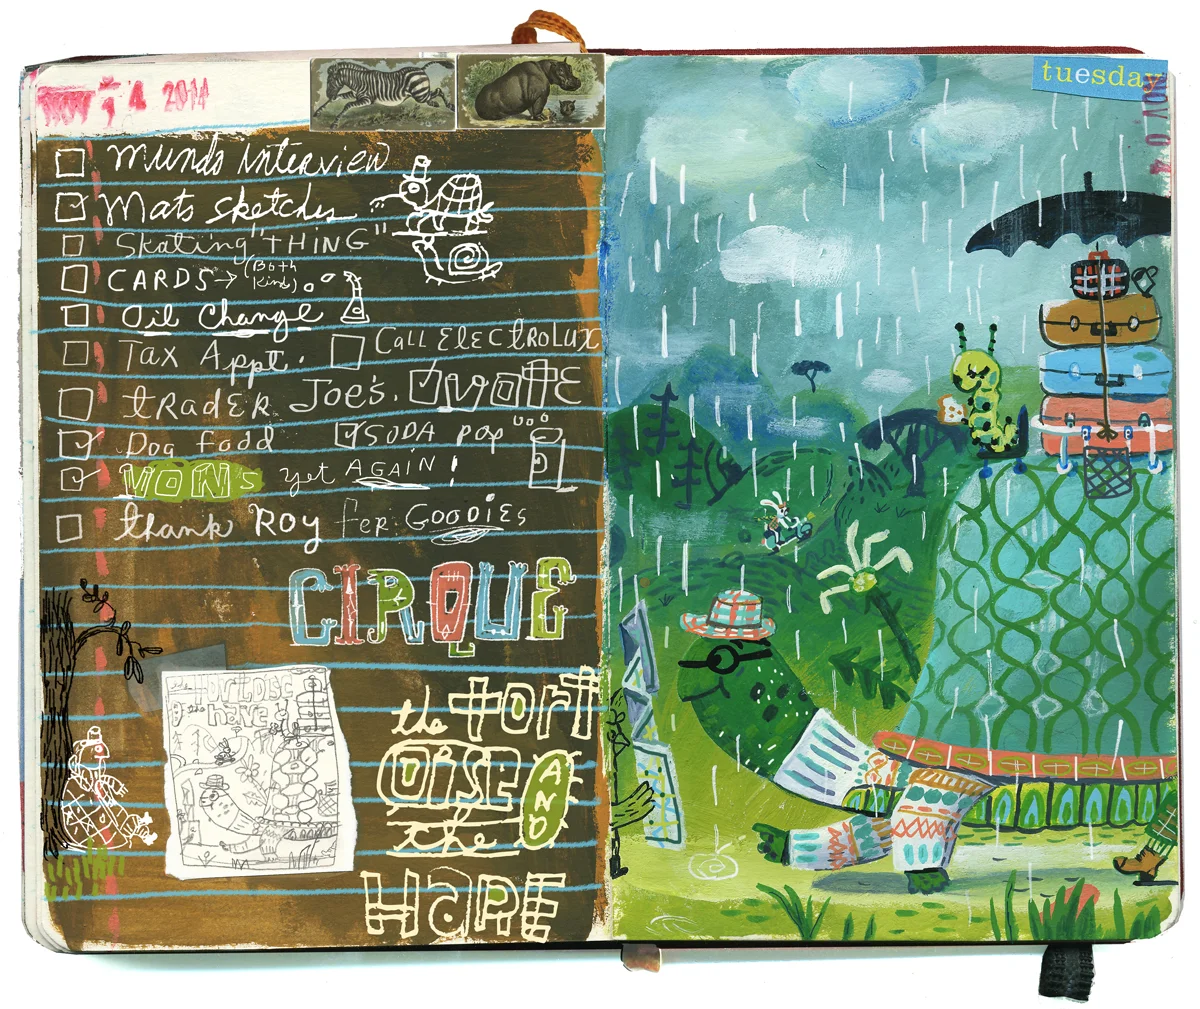 NOV 4 2014
munds interview
Mats sketches
Skating "THING"
CARDS→ (Both Kinds)
Oil Change
Tax Appt.
Call ElectroLux
trader Joe's.
VOTE
Dog food
SODA pop
VONS yet AGAIN!
thank Roy fer Goodies
CIRQUE
the tortoise AND the HARE
the tortoise
& the hare
tuesday
NOV 0 4